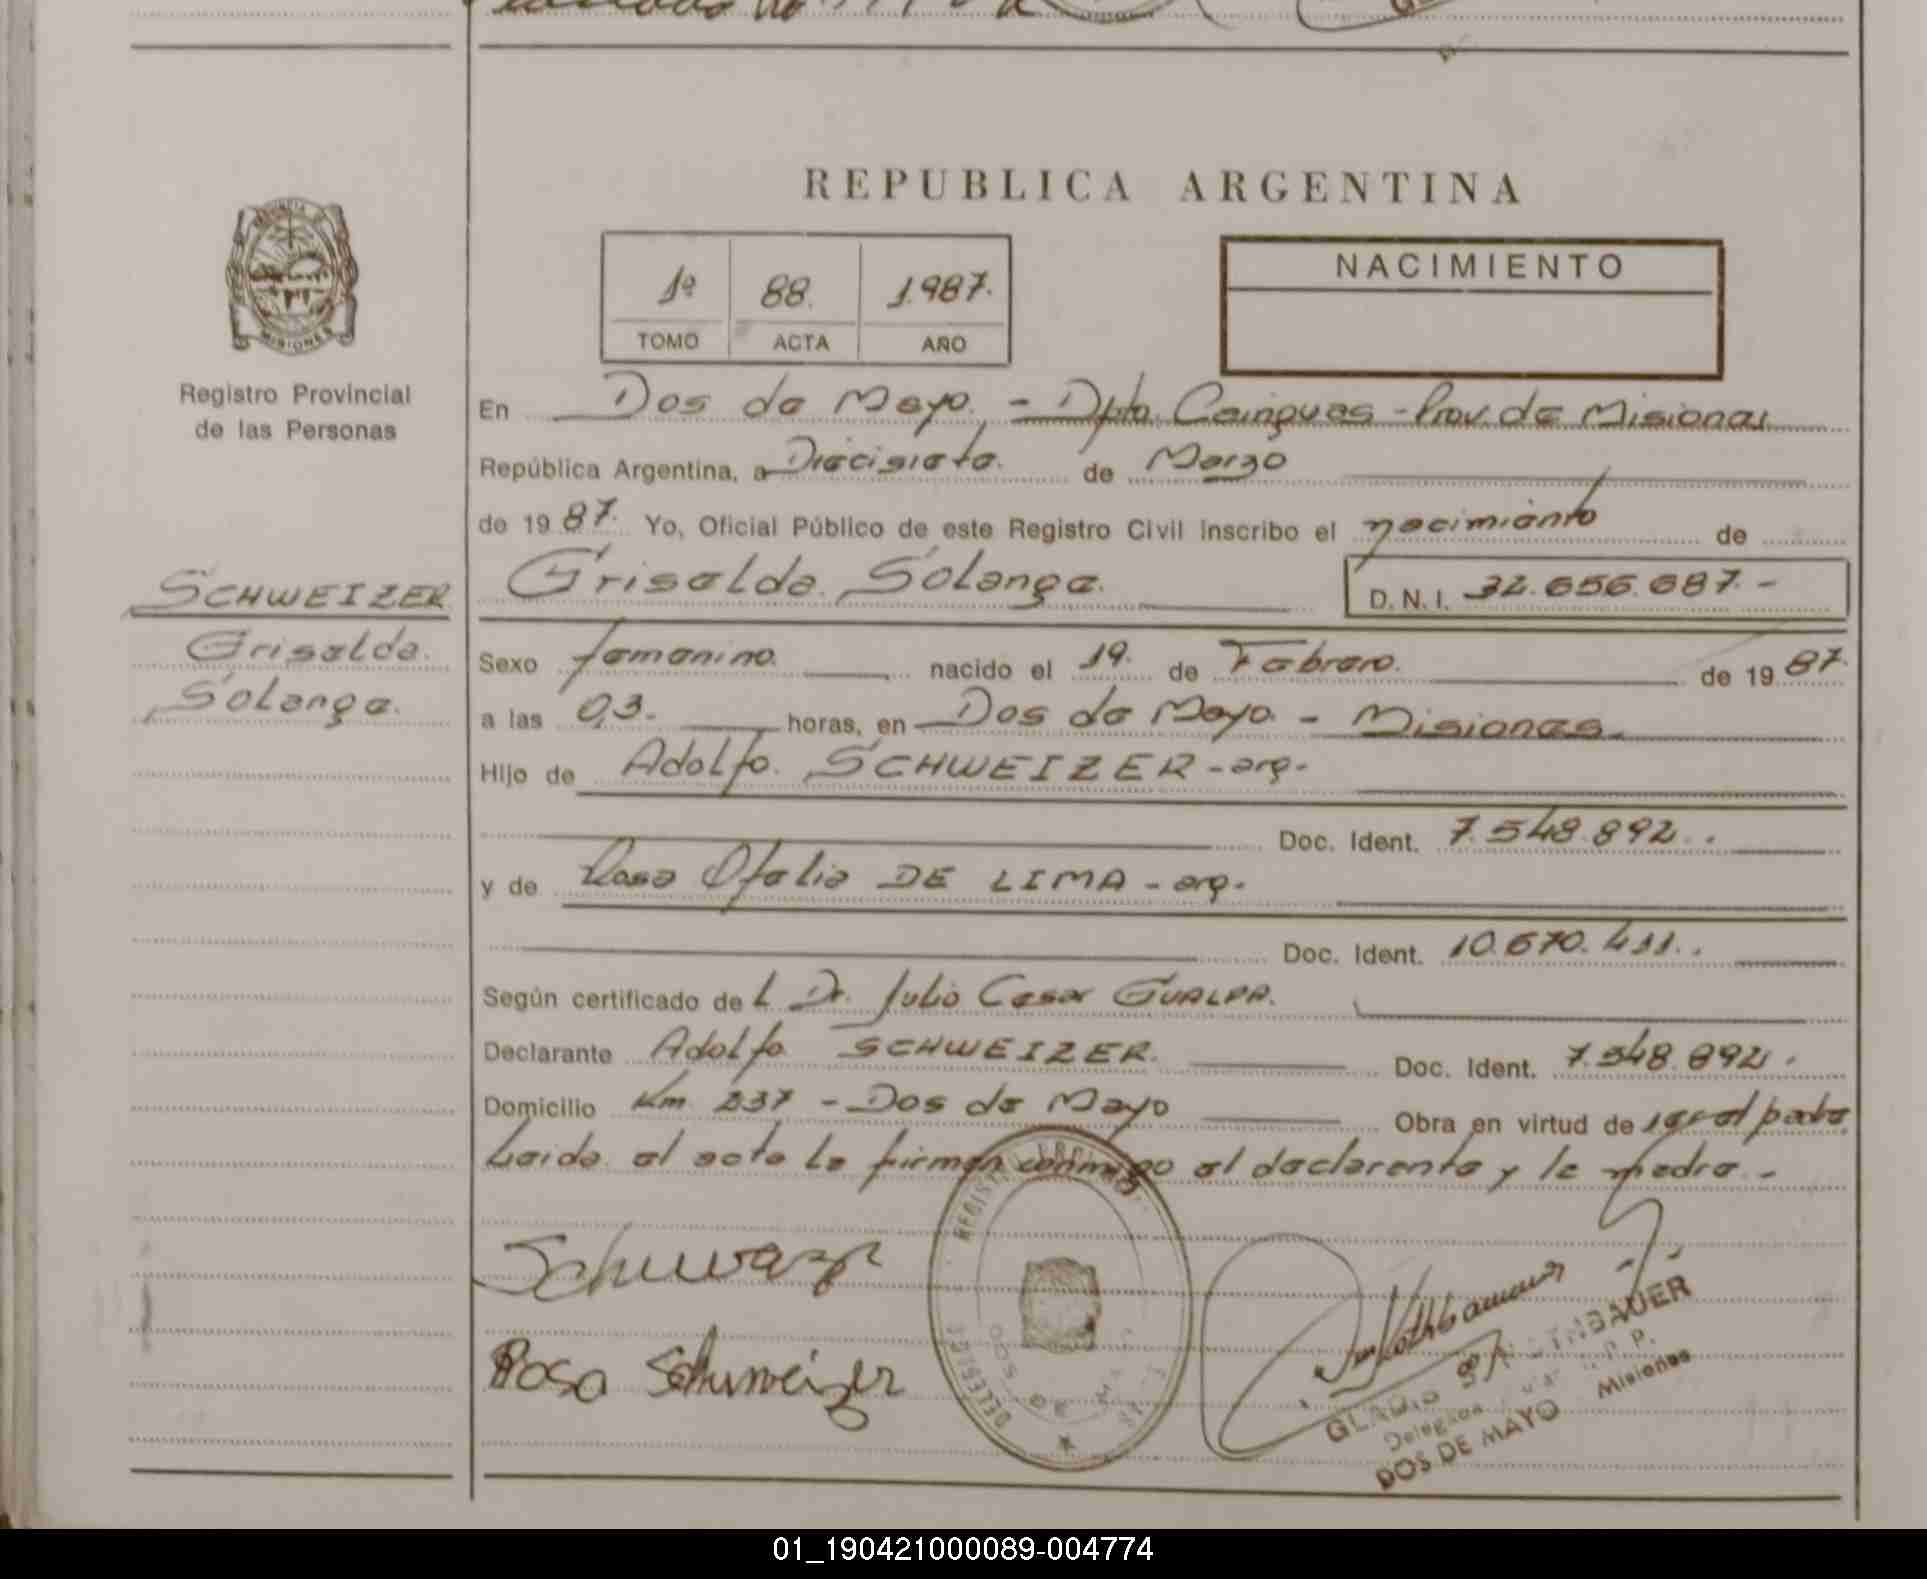 REPUBLICA ARGENTINA
1º 88. 1.987.
TOMO ACTA AÑO
NACIMIENTO
MISIONES
Registro Provincial
de las Personas
En Dos de Mayo. - Dpto. Cainguas - Prov. de Misiones
República Argentina, a Diecisiete. de Marzo
de 19 87. Yo, Oficial Público de este Registro Civil inscribo el nacimiento de
SCHWEIZER
Griselda.
Solange.
Griselda Solange. D.N.I. 32.656.687.-
Sexo femenino. nacido el 19. de Febrero. de 19 87.
a las 03. horas, en Dos de Mayo. - Misiones.
Hijo de Adolfo. SCHWEIZER - arg.
Doc. Ident. 7.548.892.
y de Rosa Ofelia DE LIMA - arg.
Doc. Ident. 10.670.411.
Según certificado del Dr. Julio Cesar GUALPA.
Declarante Adolfo SCHWEIZER. Doc. Ident. 7.548.892.
Domicilio Km 237 - Dos de Mayo Obra en virtud de
Leida el acta la firman conmigo el declarante y la madre.-
Rosa Schweizer
DOS DE MAYO Misiones
01_190421000089-004774